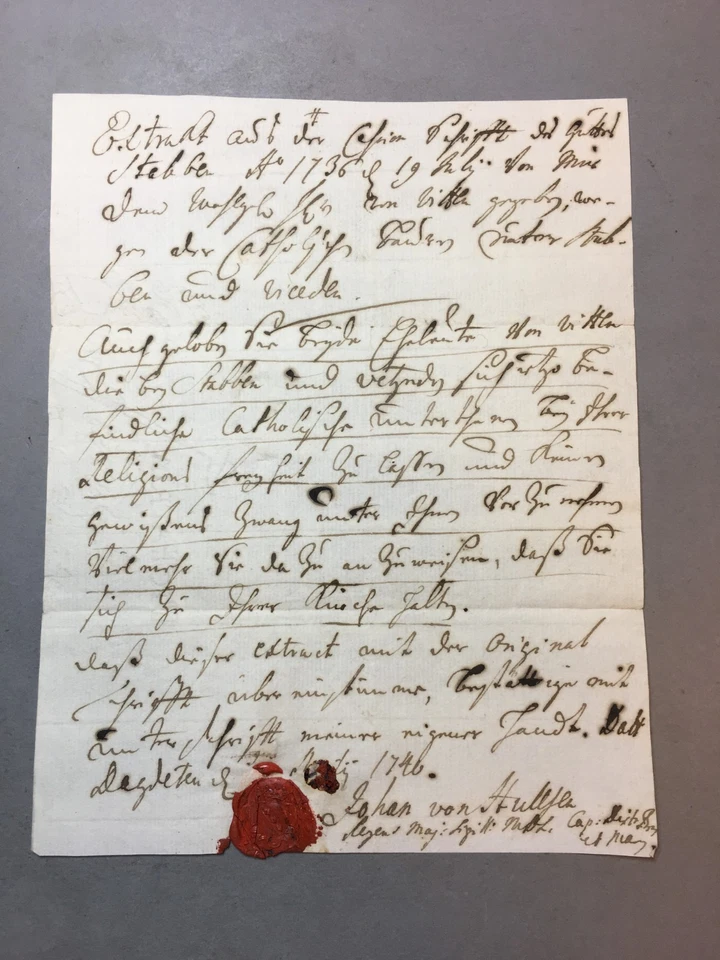 Extract aus der Cession Schrifft des Guttes
Stabben Ao 1736 d 19 July von Mir
dem Wohlgeb von Vittn gegeben, we-
gen der Catholischn Bauren unter Stab-
ben und
Auch geloben Sie beyde Eheleute von Vittn
die bey Stabben und sich itzo be-
findliche Catholische unterthanen bey Ihrer
Religions freyheit zu lassen und keinen
gewißens zwang unter Ihnen vorzunehmen
Viel mehr Sie dazu anzuweisen, daß Sie
sich zu Ihrer Kirche haltn.
daß dieser extract mit der original
schrifft übereinstimme, bestättige mit
unterschrifft meiner eigener Handt. Datt
Dagdeten d 1740.
Johan von Hullsen